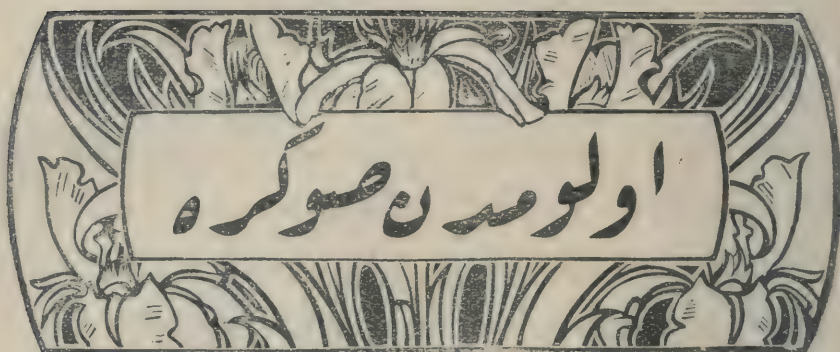 اولومدن صوكره